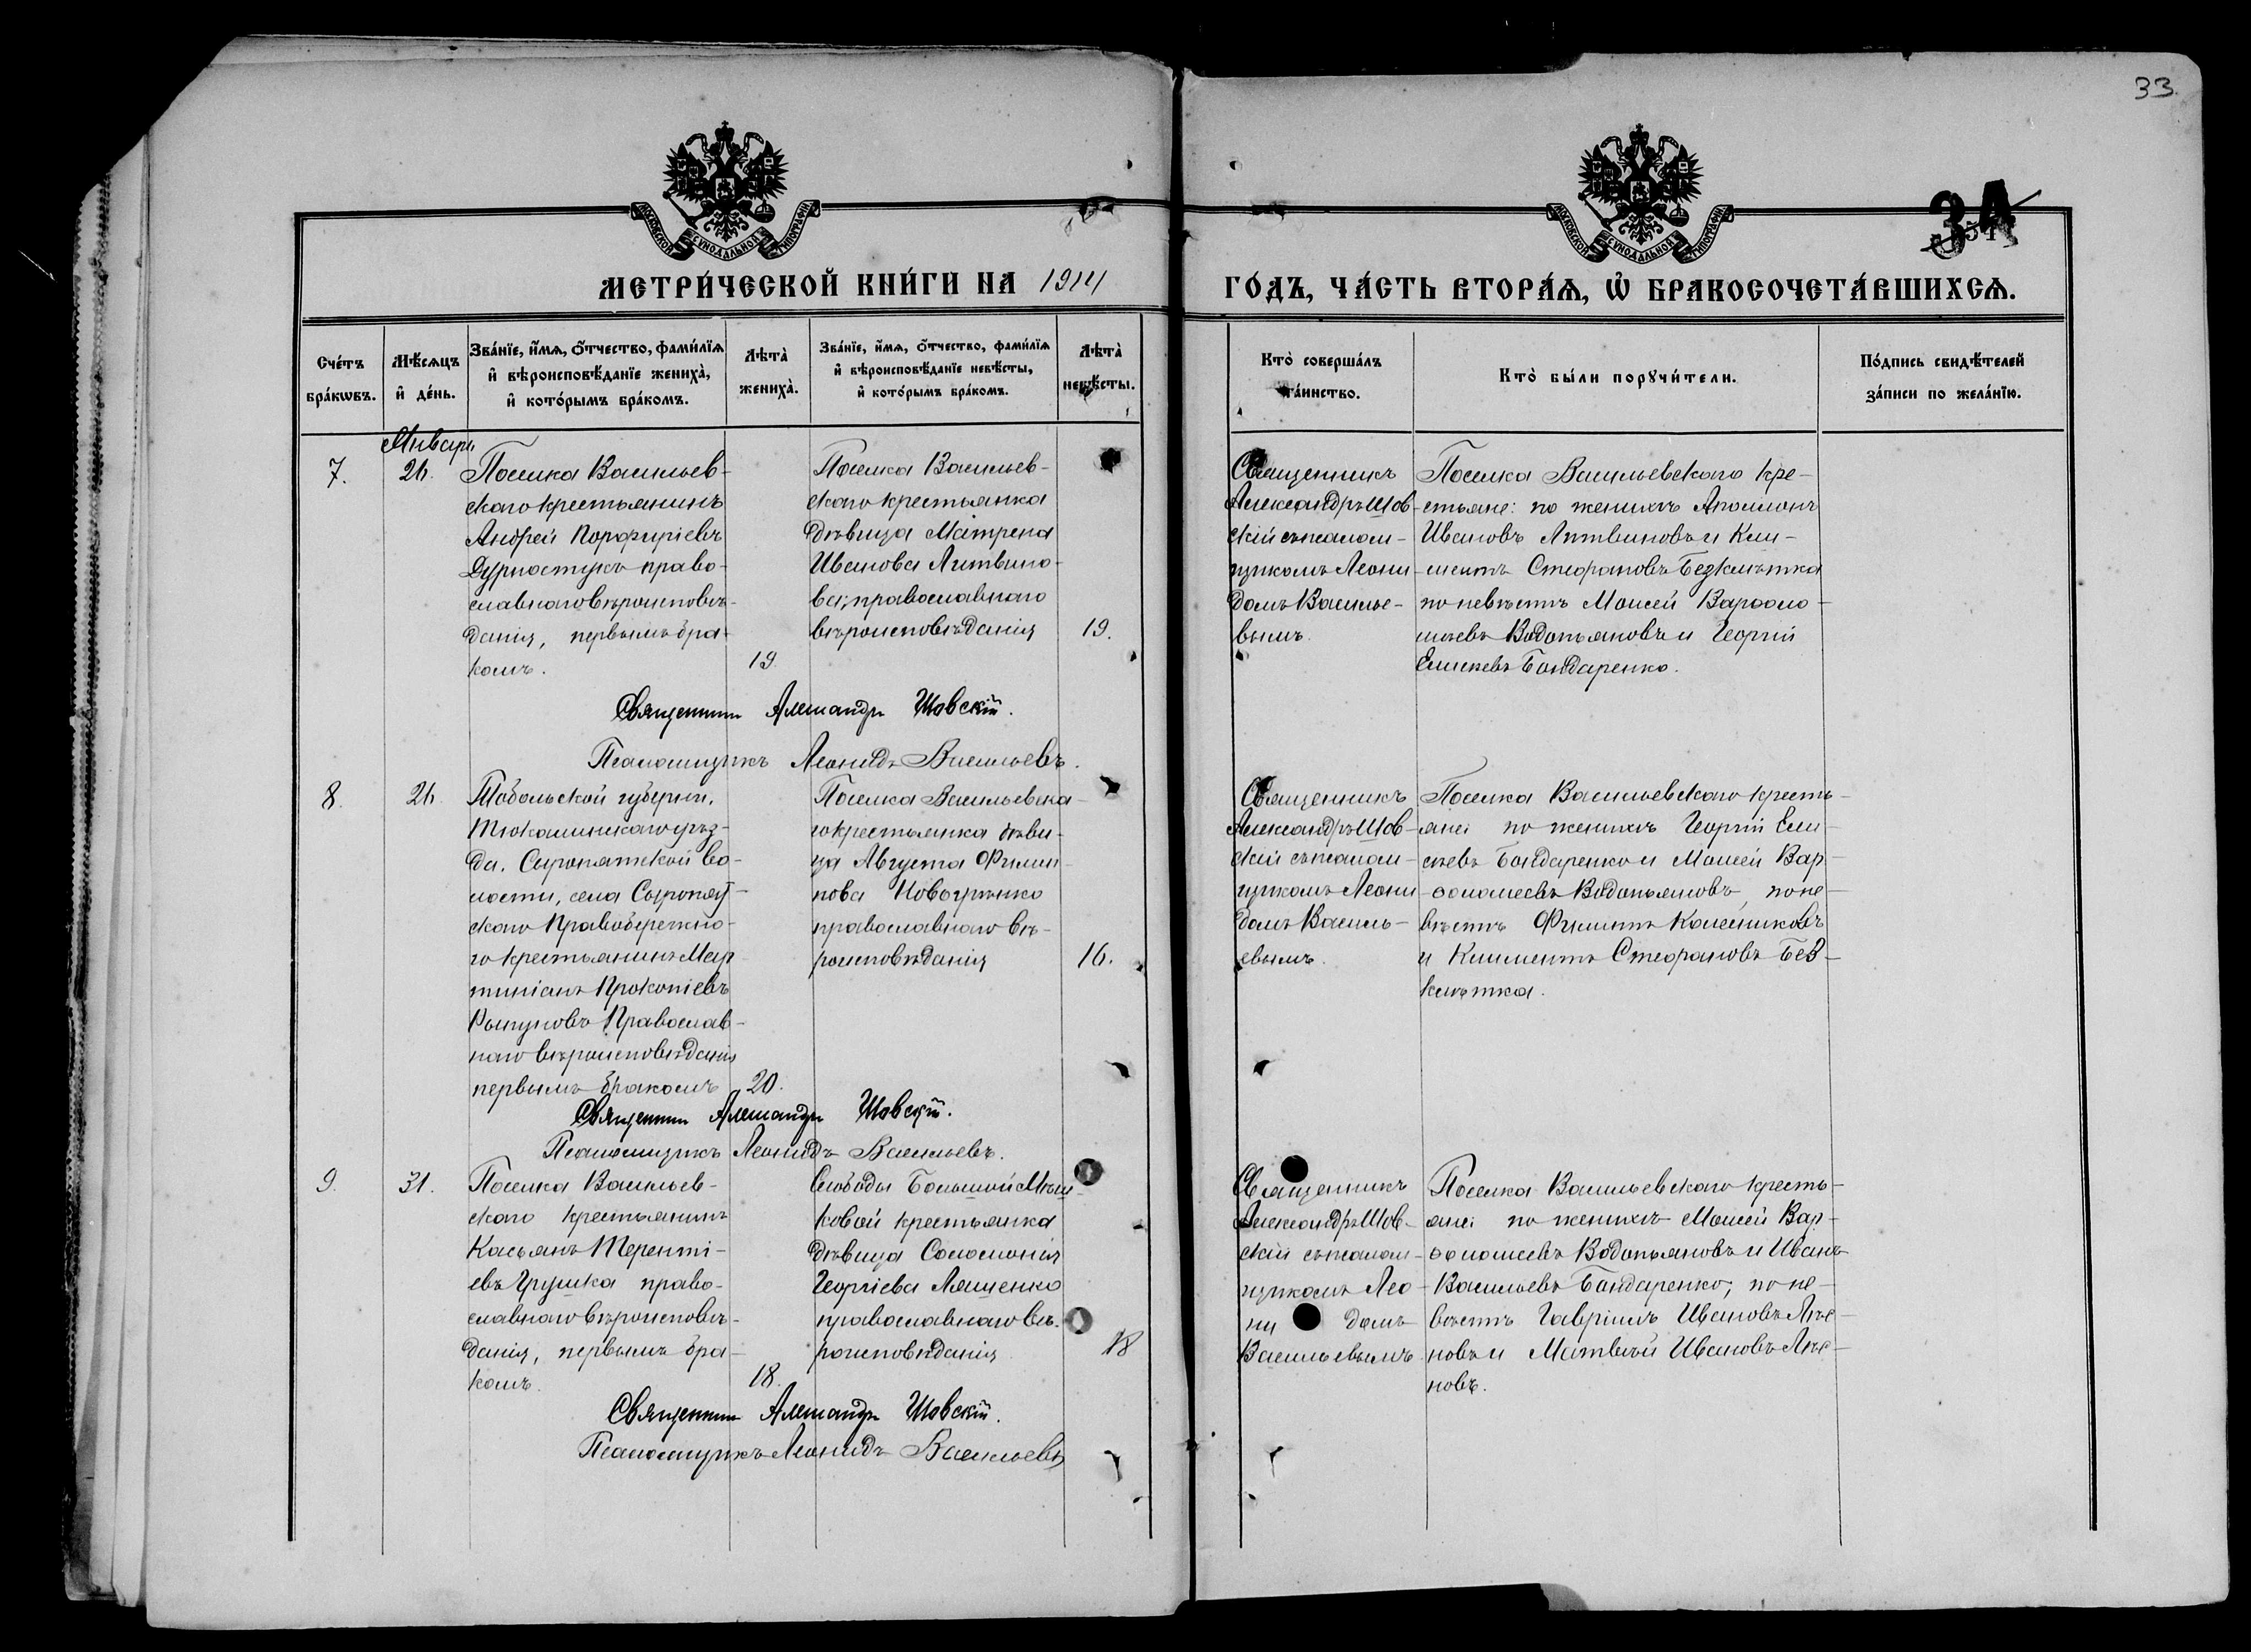 33.
34
МОСКОВСКОЙ СУНОДАЛЬНОЙ ТИПОГРАФІИ
МОСКОВСКОЙ СУНОДАЛЬНОЙ ТИПОГРАФІИ
МЕТРИ́ЧЕСКОЙ КНИ́ГИ НА 1914
ГО́ДЪ, ЧА́СТЬ ВТОРА́Ѧ, Ѡ҆ БРАКОСОЧЕТА́ВШИХСѦ.
Сче́тъ
бра́кѡвъ.
Мѣ́сѧцъ
и҆ де́нь.
Зва́нїе, и҆́мѧ, ѻ҆́тчество, фами́лїѧ
и҆ вѣроисповѣ́данїе жениха̀,
и҆ кото́рымъ бра́комъ.
Лѣта̀
жениха̀.
Зва́нїе, и҆́мѧ, ѻ҆́тчество, фами́лїѧ
и҆ вѣроисповѣ́данїе невѣ́сты,
и҆ кото́рымъ бра́комъ.
Лѣта̀
невѣ́сты.
Кто̀ соверша́лъ
та́инство.
Кто̀ бы́ли порꙋчи́тели.
По́дпись свидѣ́телей
за́писи по жела́нїю.
Январь
7.
26.
Поселка Васильев-
скаго крестьянинъ
Андрей Порфиріевъ
Дурностукъ право-
славнаго вѣроисповѣ-
данія, первымъ бра-
комъ.
19.
Поселка Васильев-
скаго крестьянка
дѣвица Матрена
Иванова Литвино-
ва; православнаго
вѣроисповѣданія
19.
Священникъ
Александръ Шов-
скій съ псалом-
щикомъ Леони-
домъ Василье-
вымъ.
Поселка Васильевскаго кре-
стьяне: по женихѣ Аполлонъ
Ивановъ Литвиновъ и Кли-
ментъ Стефановъ Безклѣтка
по невѣстѣ Моисей Варѳоло-
меевъ Водопьяновъ и Георгій
Елисеевъ Бондаренко.
Священник Александр Шовскій.
Псаломщикъ Леонидъ Васильевъ.
8.
26.
Тобольской губерніи,
Тюкалинскаго уѣз-
да, Сыропятской во-
лости, села Сыропят-
скаго Правобережно-
го крестьянинъ Мар-
тиніанъ Прокопіевъ
Рыпуновъ Православ-
наго вѣроисповѣданія
первымъ бракомъ
20.
Поселка Васильевска-
го крестьянка дѣви-
ца Августа Филип-
пова
православнаго вѣ-
роисповѣданія
16.
Священникъ
Александръ Шов-
скій съ псалом-
щикомъ Леони-
домъ Василь-
евымъ.
Поселка Васильевскаго кресть-
яне: по женихѣ Георгій Ели-
сеевъ Бондаренко и Моисей Вар-
ѳоломеевъ Водопьяновъ, по не-
вѣстѣ Филиппъ Колесниковъ
и Климентъ Стефановъ Без-
клѣтка.
Священник Александр Шовскій.
Псаломщикъ Леонидъ Васильевъ.
9.
31.
Поселка Васильев-
скаго крестьянинъ
Касьянъ Теренті-
евъ Грушка право-
славнаго вѣроисповѣ-
данія, первымъ бра-
комъ.
18.
Слободы Большой Мѣш-
ковой крестьянка
дѣвица Соломонія
Георгіева Лященко
православнаго вѣ-
роисповѣданія
18
Священникъ
Александръ Шов-
скій съ псалом-
щикомъ Лео-
ни домъ
Васильевымъ.
Поселка Васильевскаго кресть-
яне: по женихѣ Моисей Вар-
ѳоломеевъ Водопьяновъ и Иванъ
Васильевъ Бондаренко; по не-
вѣстѣ Гавріилъ Ивановъ
и Матвѣй Ивановъ
Священник Александр Шовскій.
Псаломщикъ Леонидъ Васильевъ